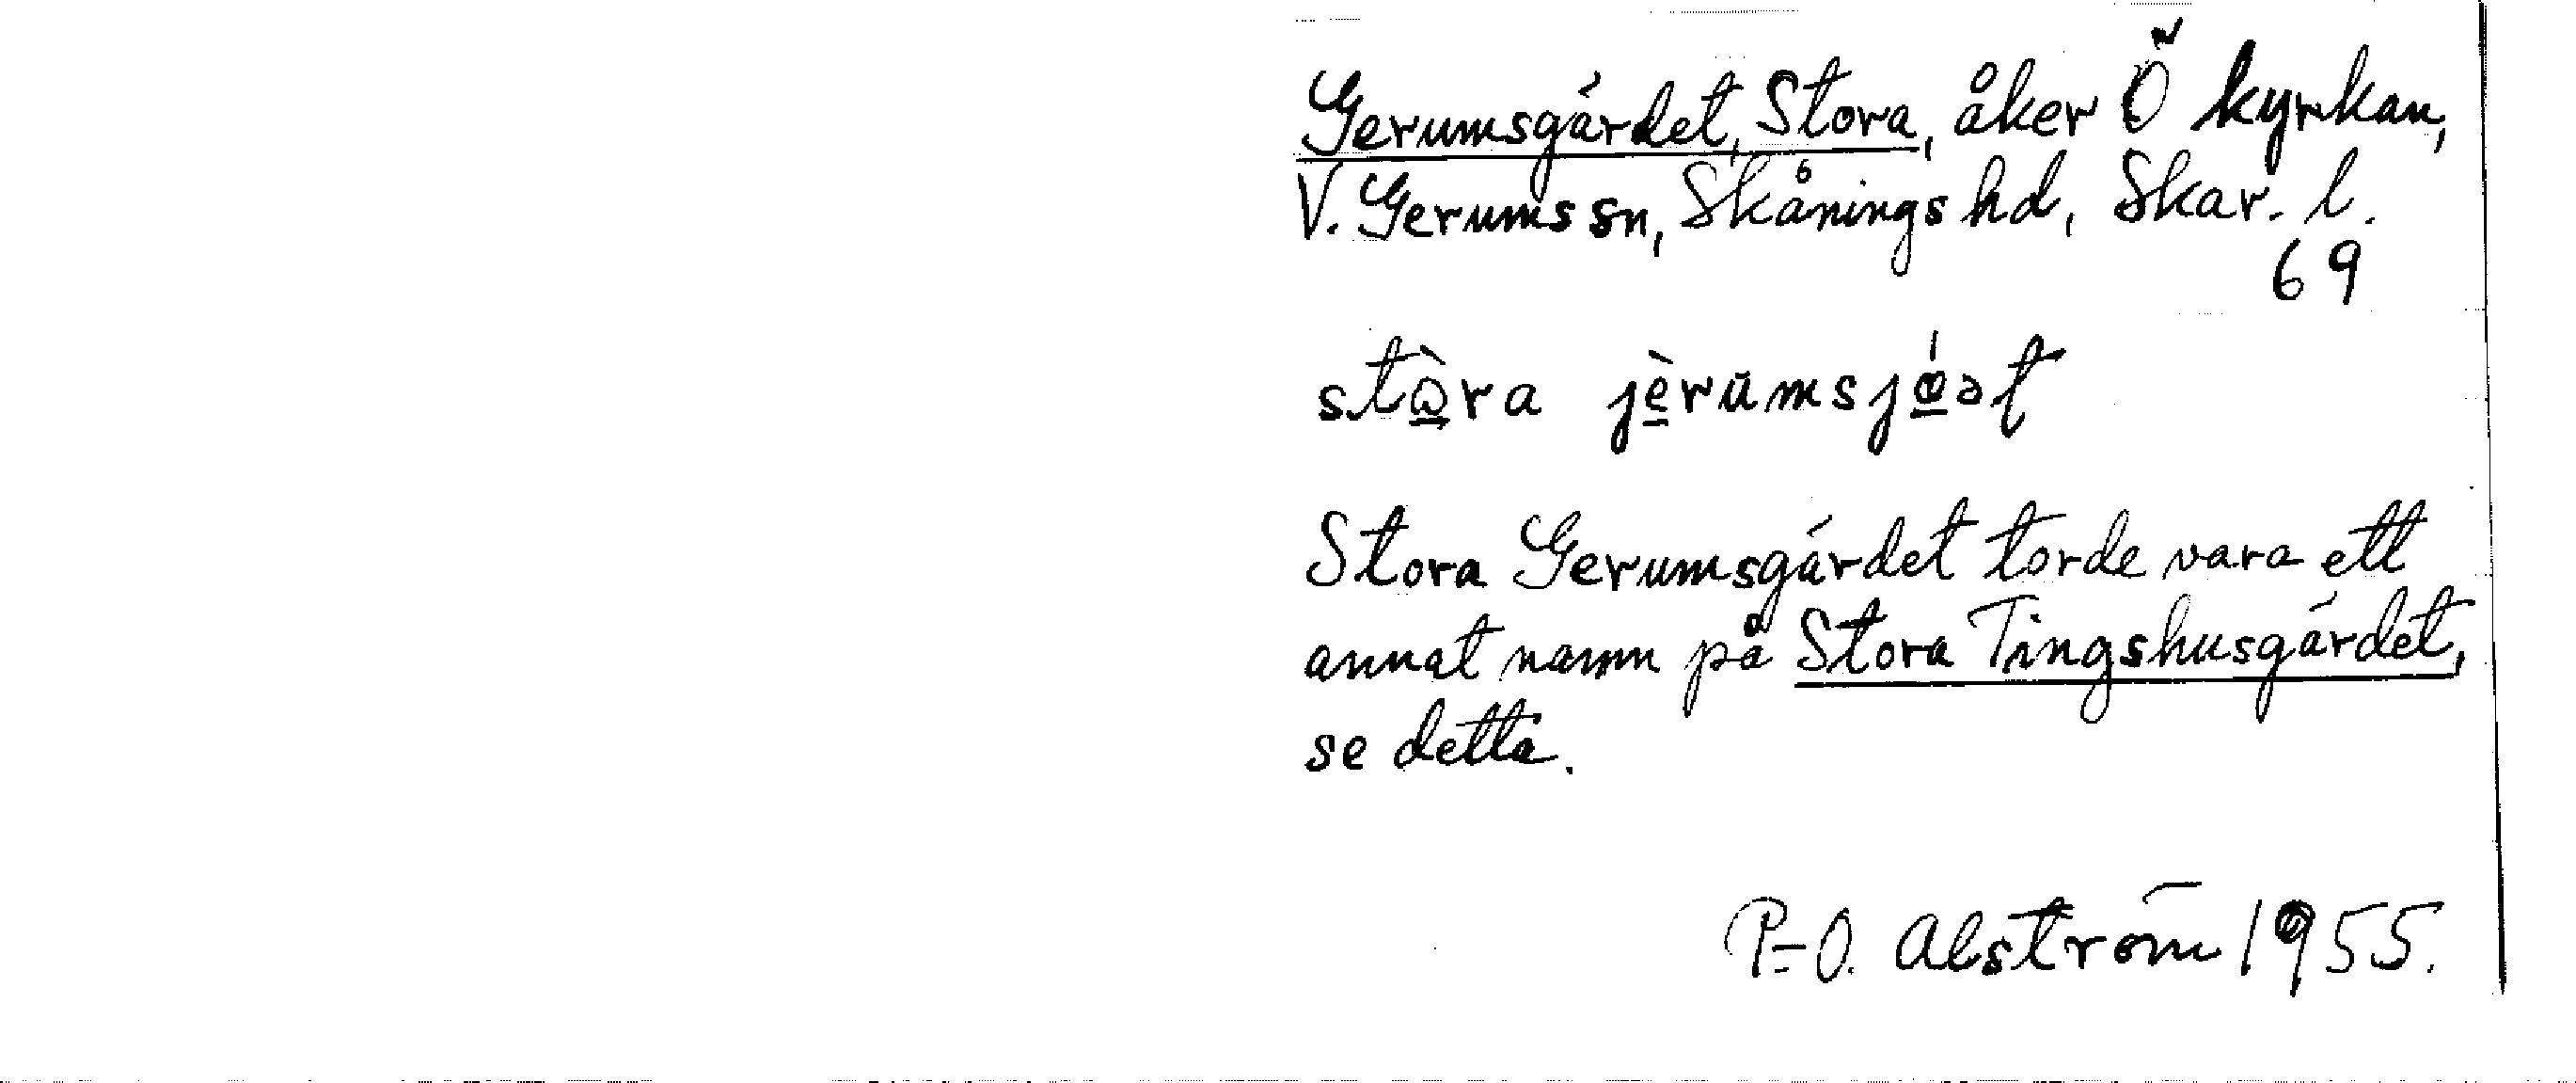 Gerumsgärdet, Stora, åker Ö kyrkan,
V. Gerums sn, Skånings hd, Skar. l.
69
Stora Gerumsgärdet torde vara ett
annat namn på Stora Tingshusgärdet,
se detta.
P-O. Alström 1955.